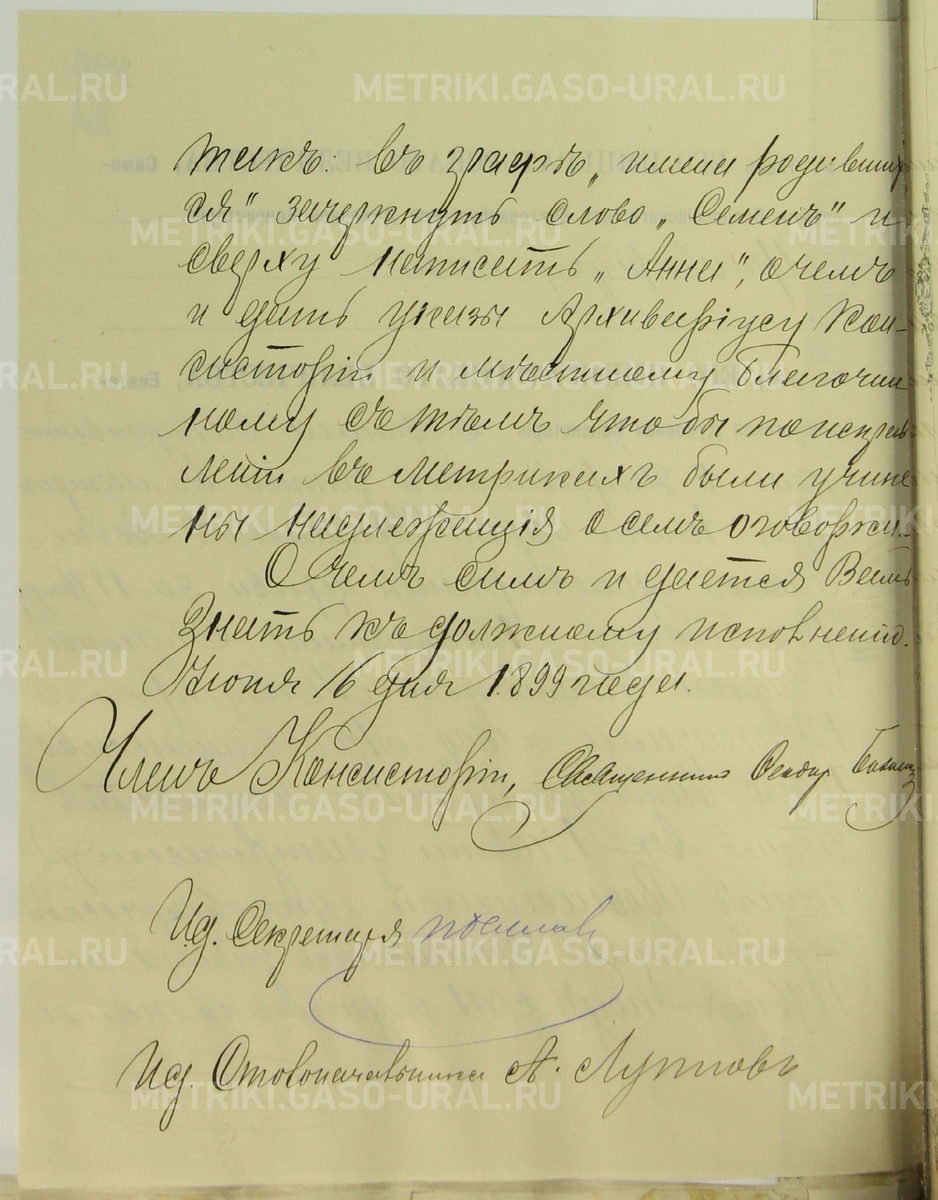 такъ: въ графѣ „имена родивших
ся" зачеркнуть слово „Семенъ" и
сверху написать „Анна", о чемъ
и дать указы Архиваріусу Кон-
систоріи и мѣстному Благочин
ному съ тѣмъ чтобы по исправ
леніи въ метрикахъ были учине
ны надлежащія о семъ оговорки.
О чемъ симъ и дается Вамъ
знать къ должному исполненію.
Іюня 16 дня 1899 года.
Членъ Консисторіи, Священникъ
И.д. Секретаря
И.д. Столоначальника А.
METRIKI.GASO-URAL.RU